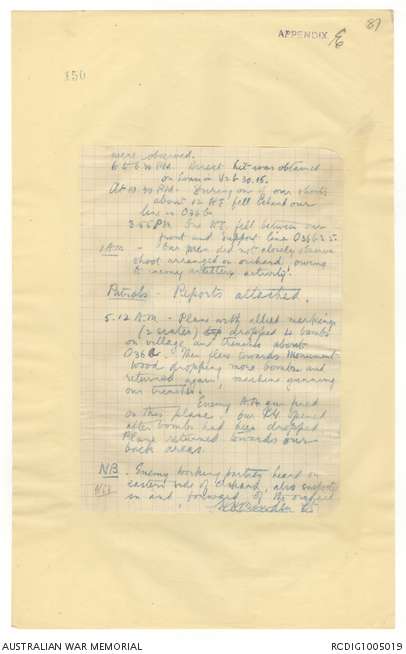 APPENDIX 9/6
87
150
were observed.
6.5 6.10 PM. Direct hit was obtained
on V26.30.15.
At 10.30 PM. During one of our shoots
about 12 H.E fell behind our
line in O36b.
3.55 PM One H.E. fell between our
front and support line O36b.3.5.
1 AM - Our men did not closely observe
shoot arranged on orchard owing
to enemy artillery activity.
Patrols - Reports attached.
5.12 A.M - Plane with allied markings
(2 seater) dropped 4 bombs
on village and trenches about
O36b. Then flew towards Monument
Wood dropping more bombs and
returned again, machine gunning
our trenches.
Enemy AA gun fired
on this plane. Our LG opened
after bombs had been dropped
Plane returned towards our
back areas.
NB. Enemy working parties heard on
eastern side of, also
in and forward of the orchard
AUSTRALIAN WAR MEMORIAL
RCDIG1005019